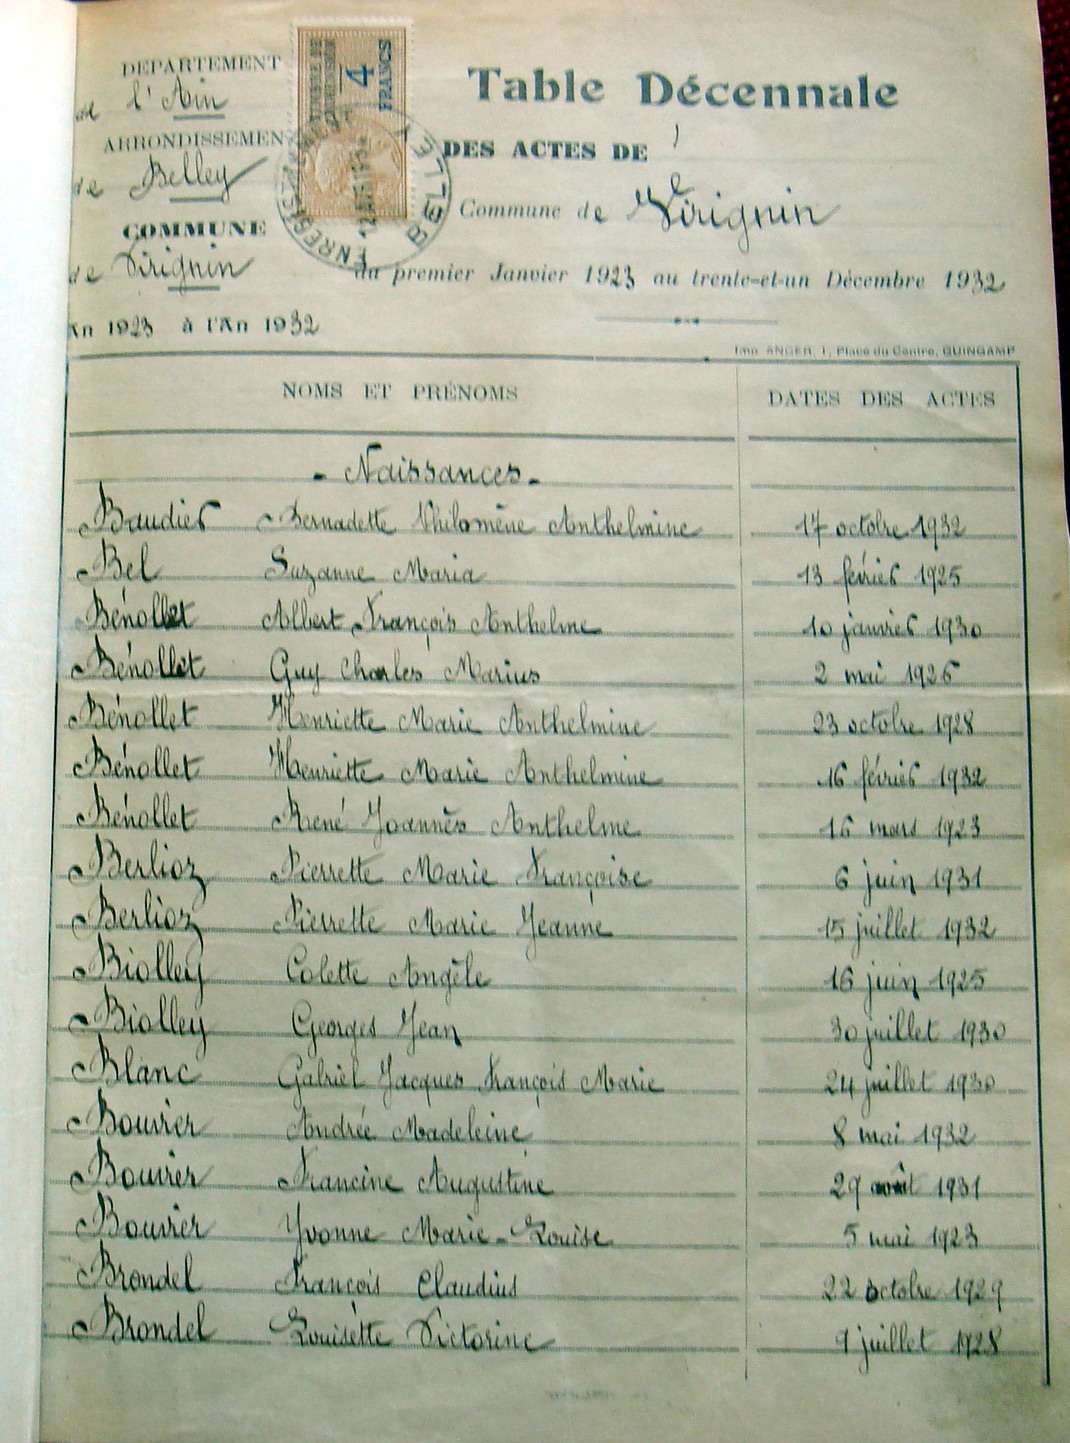 DÉPARTEMENT
de l'Ain
ARRONDISSEMEN
de Belley
COMMUNE
de Virignin
An 1923 à l'An 1932
TIMBRE DE
DIMENSION
4
FRANCS
ENREGIS
BELLEY
Table Décennale
DES ACTES DE
Commune de Virignin
du premier Janvier 1923 au trente-et-un Décembre 1932
Imp. ANGER, 1, Place du Centre, GUINGAMP
NOMS ET PRÉNOMS DATES DES ACTES
- Naissances -
Baudier Bernadette Philomène Anthelmine 17 octobre 1932
Bel Suzanne Maria 13 février 1925
Bénollet Albert François Anthelme 10 janvier 1930
Bénollet Guy Charles Marius 2 mai 1926
Bénollet Henriette Marie Anthelmine 23 octobre 1928
Bénollet Henriette Marie Anthelmine 16 février 1932
Bénollet René Joannès Anthelme 16 mars 1923
Berlioz Pierrette Marie Françoise 6 juin 1931
Berlioz Pierrette Marie Jeanne 15 juillet 1932
Biolley Colette Angèle 16 juin 1925
Biolley Georges Jean 30 juillet 1930
Blanc Gabriel Jacques François Marie 24 juillet 1930
Bouvier Andrée Madeleine 8 mai 1932
Bouvier Francine Augustine 29 août 1931
Bouvier Yvonne Marie-Louise 5 mai 1923
Brondel François Claudius 22 octobre 1929
Brondel Louisette Victorine 9 juillet 1928